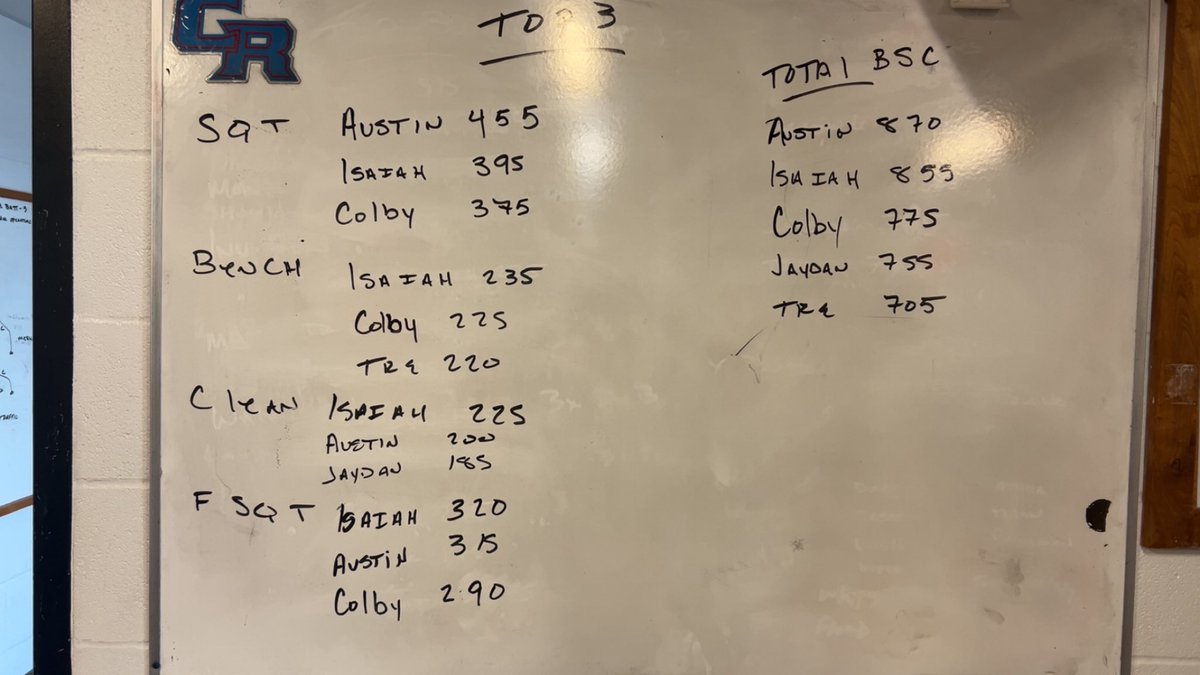 CR
TOP 3
SQT AUSTIN 455
ISAIAH 395
Colby 375
BENCH ISAIAH 235
Colby 225
TRE 220
CleAN ISAIAH 225
AUSTIN 200
JAYDAN 185
F SQT ISAIAH 320
AUSTIN 315
Colby 290
TOTAl BSC
AUSTIN 870
ISAIAH 855
Colby 775
JAYDAN 755
TRE 705